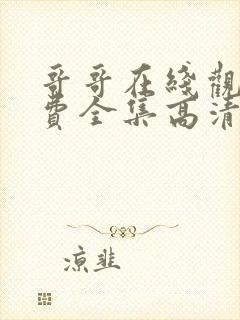 哥哥在綫觀
費全集高清
凉韭